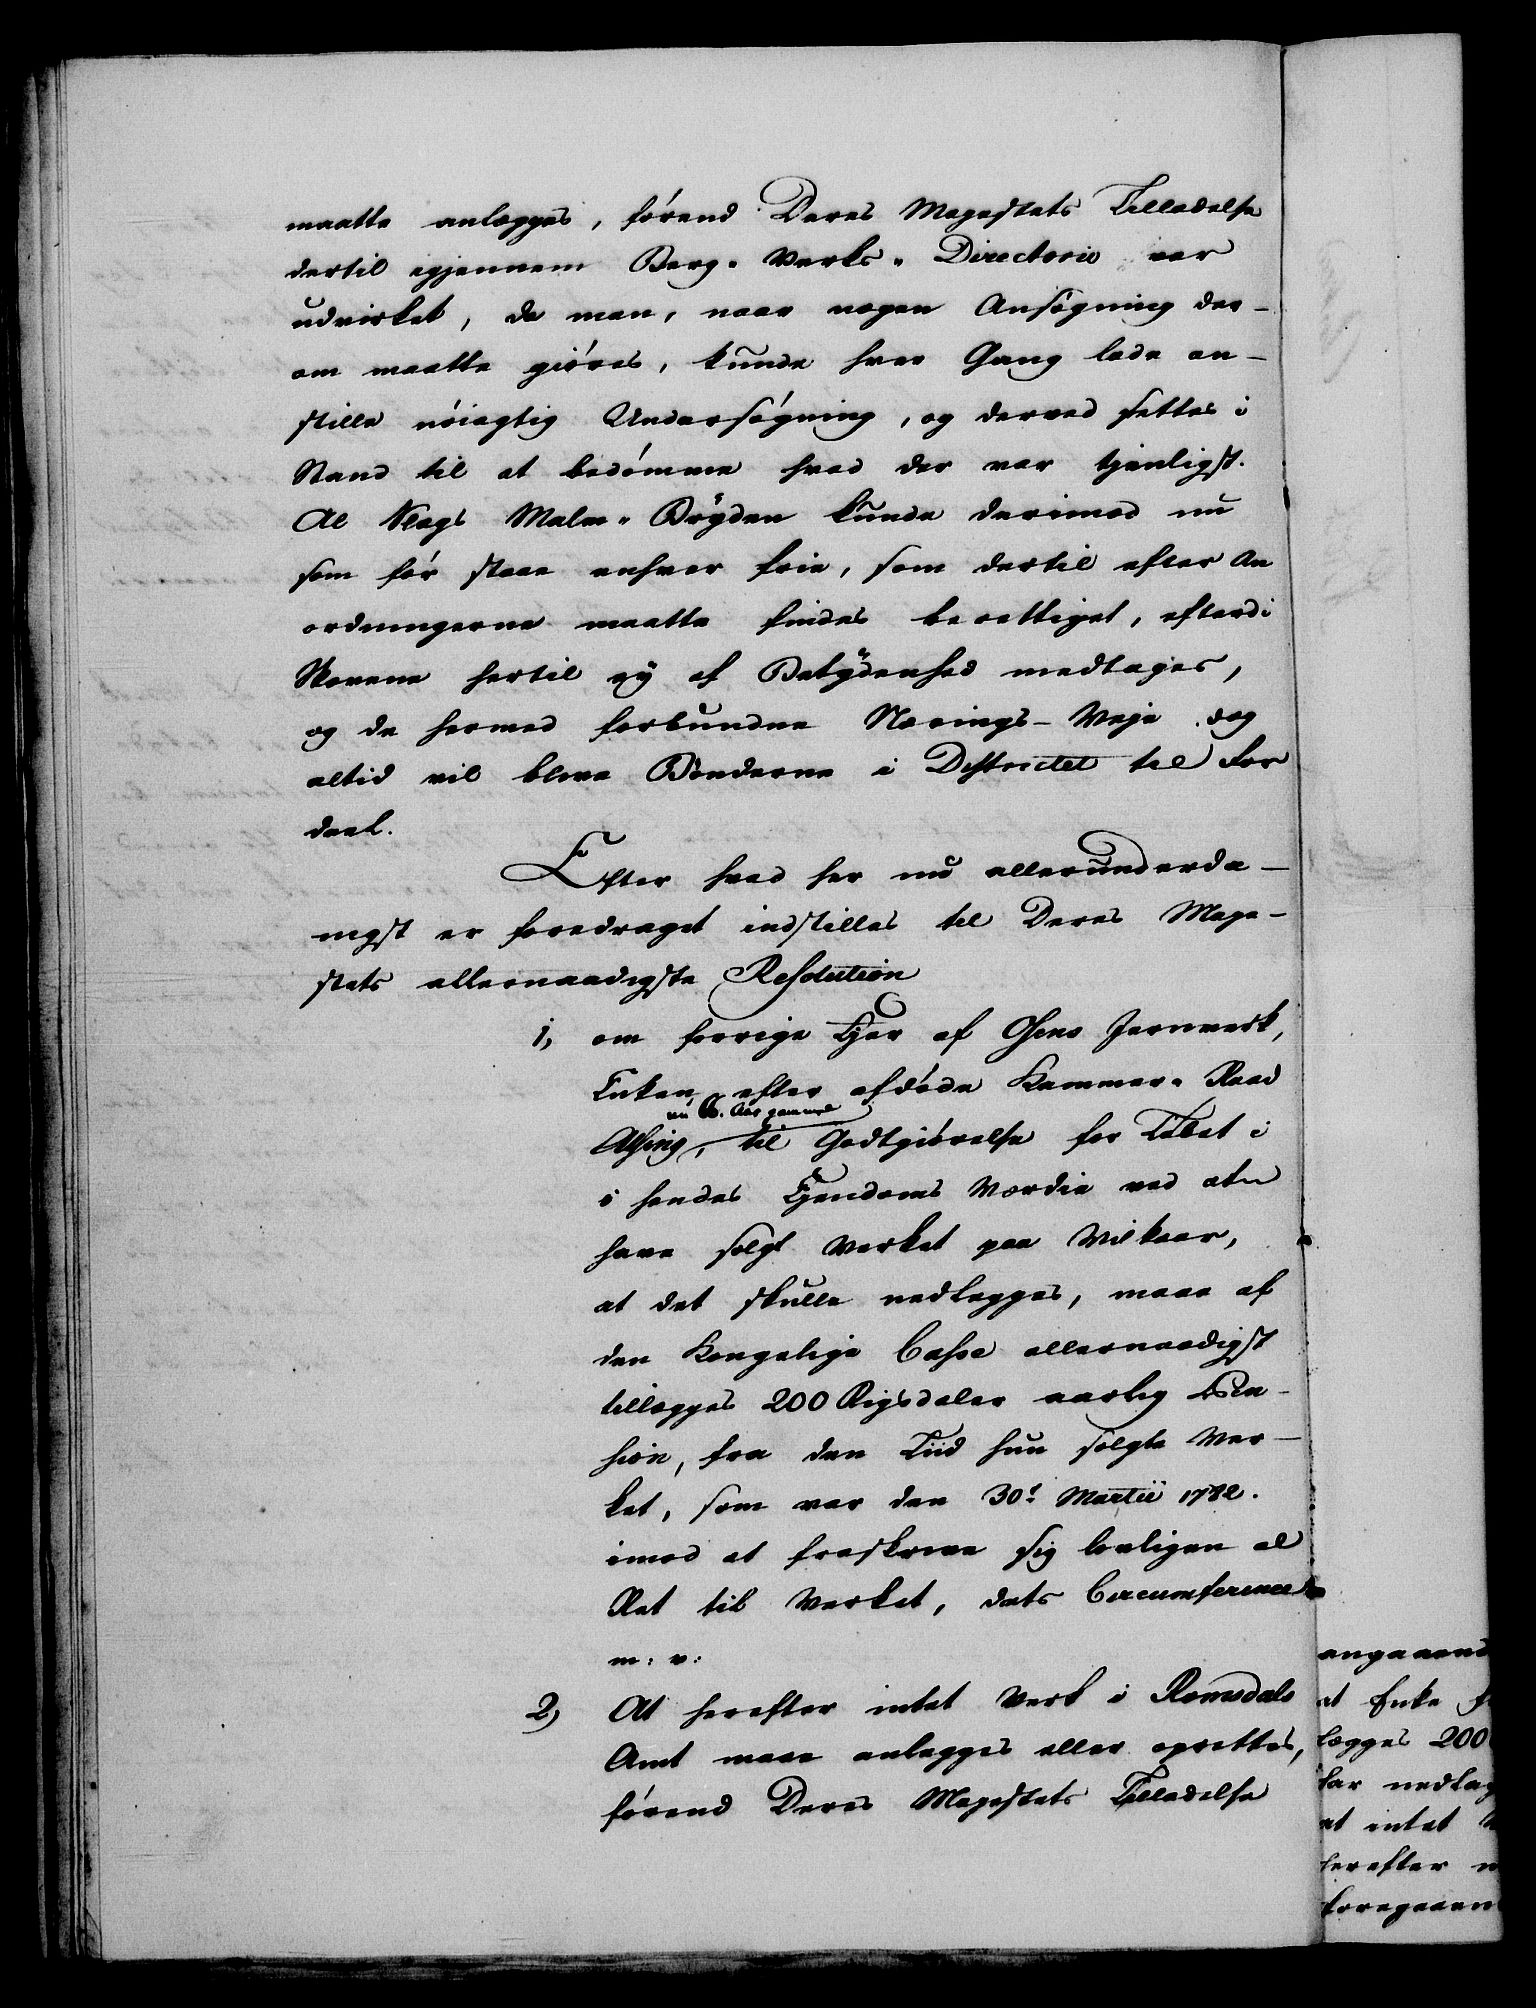 maatte anlægges, førend Deres Majestets Tilladelse
dertil igjennem Berg-Verks-Directorie var
udvirket, da man, naar nogen Ansøgning der-
om maatte giøres, kunde hver Gang lade an-
stille nøiagtig Undersøgning, og derved settes i
Stand til at bedømme hvad der var tjenligst.
Al Slags Malm-Bryden kunde derimod nu
som før staae enhver frie, som dertil efter An
ordningerne maatte findes berettiget, efterdi
Skovene hertil ey af Betydenhed medtages,
og de hermed forbundne Nærings-Veje dog
altid vil blive Bønderne i Districtet til For
deel.
Efter hvad her nu allerunderda-
nigst er foredraget indstilles til Deres Maje-
stets allernaadigste Resolution
1, om forrige Ejer af Osens Jernverk,
Enken efter afdøde Kammer-Raad
nu Aar gammel
Alsing, til Godtgiørelse for Tabet i
i hendes Ejendoms Værdie ved at
have solgt Verket paa Vilkaar,
at det skulle nedlægges, maae af
den Kongelige Casse allernaadigst
tillægges 200 Rigsdaler aarlig Pen-
sion, fra den Tiid hun solgte Ver-
ket, som var den 30t Martii 1782.
imod at fraskrive sig lovligen al
Ret til Verket, dets Circumference
m: v:
2) At herefter intet Verk i Romsdals
Amt maae anlægges eller oprettes,
førend Deres Majestets Tilladelse
angaaend
at Enke
lægges 200
nedlag
at intet
herefter
foregaaen